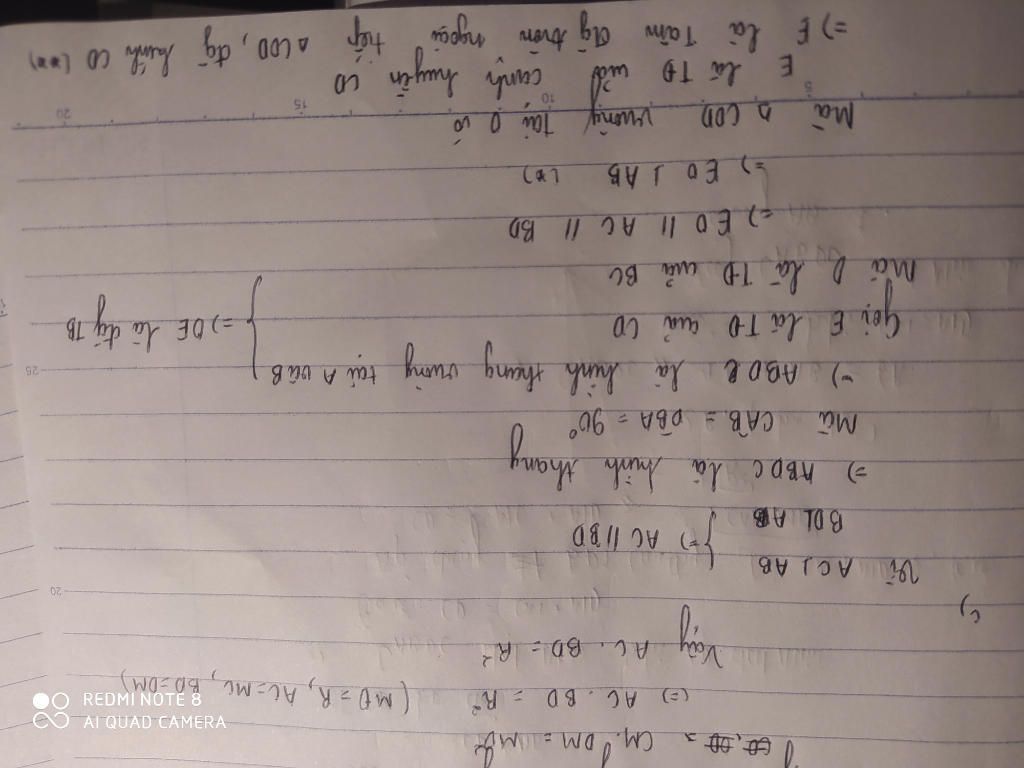 CM. DM = MO²
(=) AC. BD = R² (MO = R, AC = MC, BD = DM)
Vậy AC. BD = R²
c)
Vì AC ⊥ AB
BD ⊥ AB } =) AC // BD
=) ABDC là hình thang
Mà CÂB = DB̂A = 90°
=) ABDC là hình thang vuông tại A và B
Gọi E là TĐ của CD
Mà O là TĐ của BC } =) OE là đg TB
=) EO // AC // BD
=) EO ⊥ AB (*)
Mà ∆ COD vuông tại O có
E là TĐ của cạnh huyền CD
=) E là Tâm đg tròn ngoại tiếp ∆ COD, đg kính CD (**)
20
25
20
15
10
5
REDMI NOTE 8
AI QUAD CAMERA